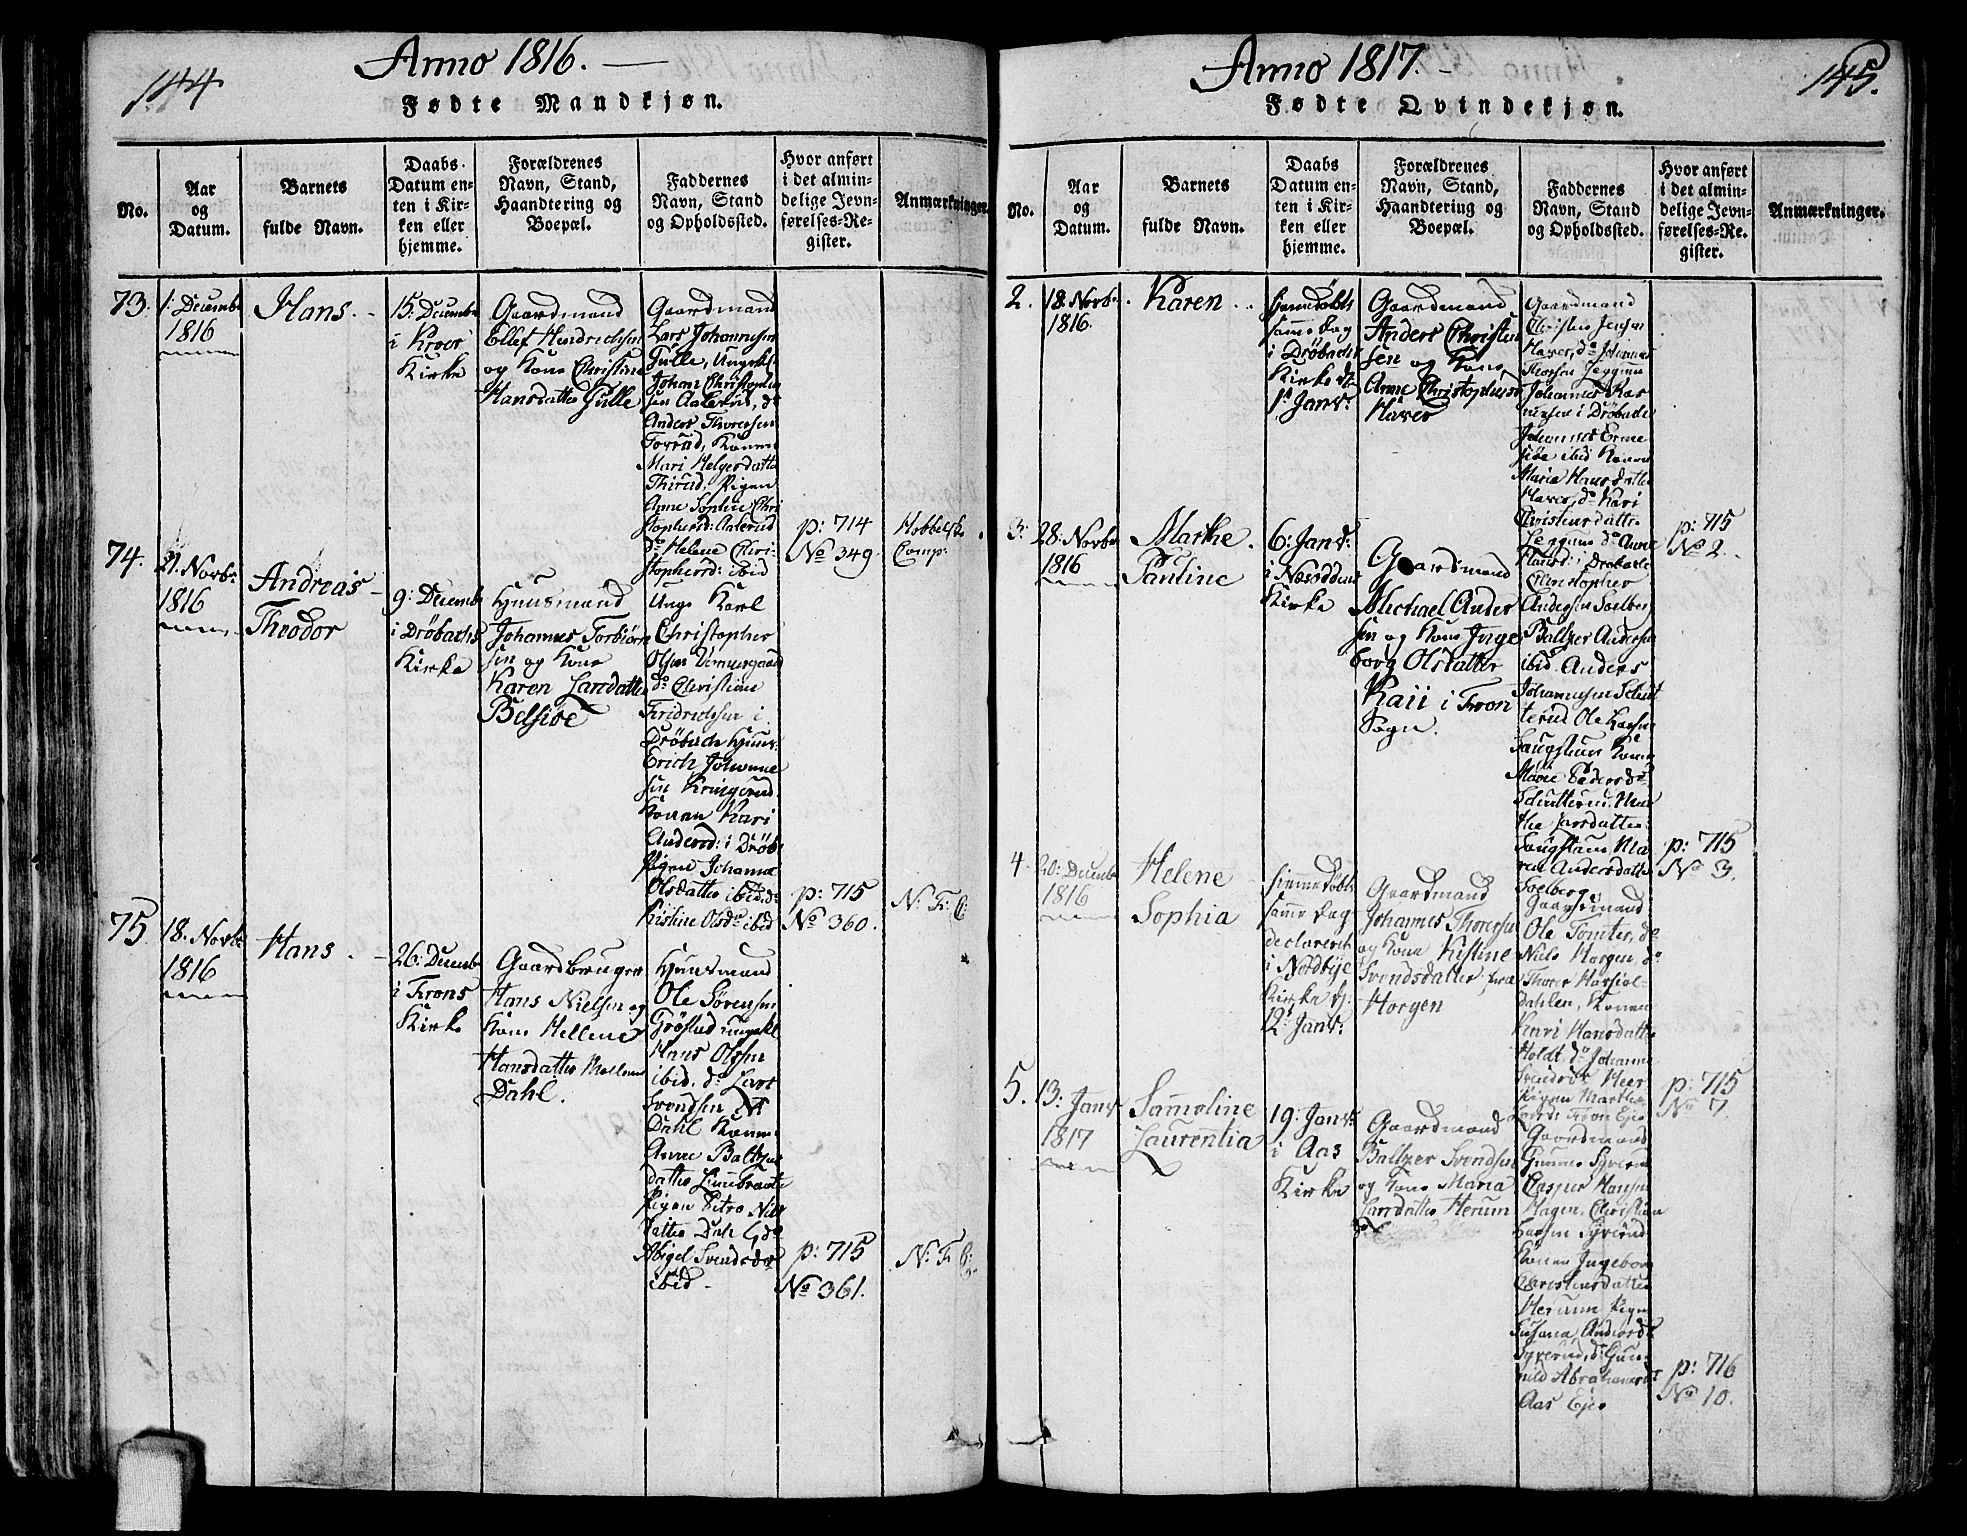 144.
Anno 1816.
Fødte Mandkjøn.
No.
Aar
og
Datum.
Barnets
fulde Navn.
Daabs-
Datum en-
ten i Kir-
ken eller
hjemme.
Forældrenes
Navn, Stand,
Haandtering og
Boepæl.
Faddernes
Navn, Stand
og Opholdssted.
Hvor anført
i det almin-
delige Jevn-
førelses-Re-
gister.
Anmærkninger.
73.
1: Decembr
1816
Hans.
15: Decembr
i Kroer
Kirke
Gaardmand
Ellef Hendrichsen
og Kone Christine
Hansdatter Gulle
Gaardmand
Lars Johannesen
Gulle, Ungekl
Johan Christophe
sen Aaserud, do
Anders Thoresen
Torrud, Konen
Mari Helgesdatter
Thirud, Pigen
Anne Sophie Chri
stophersd: Aaserud
do Helene Chri-
stophersd: ibid
p: 714
No 349.
Hobbelske
Comp:
74.
21. Novbr
1816
Andreas
Theodor
9: Decemb
i Drøbachs
Kirke
Huusmand
Johannes Torbiørn
sen og Kone
Karen Larsdatter
Belsiøe
Unge Karl
Christopher
Olsen
do Christian
Fridrichsen i
Drøbach Huus-
Erich Johanne
sen Kringerud
Konen Kari
Andersd: i Drøb
Pigen Johanna
Olsdatter ibid, do
Kistine Olsdr ibid
p: 715
No 360.
N: F: C:
75.
18. Novbr
1816
Hans
26: Decemb
i Frons
Kirke
Gaardbruger
Hans Nielsen og
Kone Hellene
Hansdatter Mellem
Dahl.
Huusmand
Ole Sørensen
Grøslud ungekl
Hans Olssen
ibid. do Lars
Svendsen
Dahl Konen
Anne Baltzer
datter
Pigen Petro Nils
datter Dahl, do
Abigel Svendsdr
ibid.
p: 715
No 361.
N: F: C:
Anno 1817.
145.
Fødte Qvindekjøn.
No.
Aar
og
Datum.
Barnets
fulde Navn.
Daabs
Datum en-
ten i Kir-
ken eller
hjemme.
Forældrenes
Navn, Stand,
Haandtering og
Boepæl.
Faddernes
Navn, Stand
og Opholdssted.
Hvor anført
i det almin-
delige Jevn-
førelses-Re-
gister.
Anmærkninger.
2.
18. Novbr
1816.
Karen
hjemmedøbt
samme Dag
i Drøbachs
Kirke d:
1ste Janv:
Gaardmand
Anders Christen
sen og Kone
Anne Christophersd
Haver
Gaardmand
Christen Jensen
Haver, do Johannes
Thorsen Leggum
Johannes Ras
musen i Drøbach
Johannes Erme
siøe ibid Konen
Maria Hansdatter
Haver, do Kari
Christensdatter
Leggum do Anne
i Drøbach
p: 715
No 2.
3:
28. Novbr
1816
Marthe
Pauline
6: Janv:
i Næsoddens
Kirke
Gaardmand
Michael Ander
sen og Kone Inge
borg Olsdatter
Kaii i Fron
Sogn.
Christopher
Andersen Solberg
Baltzer Andersen
ibid. Anders
Johannesen
Ole
Konen
Marie Pedersdr
Larsdatter
Andersdatter
Solberg
p: 715
No 3.
4.
20: Decemb
1816
Helene
Sophia
hjemmedøbt
samme Dag
declareret
i Nordbye
Kirke d:
12: Janv:
Gaardmand
Johannes Thoresen
og Kone Kistine
Svendsdatter
Horgen
Gaardmand
Ole Tomter, do
Niels Horgen, do
Thore
dahlen, Konen
Kari Hansdatter
Holdt, do Johanne
Svendsdr Heer
Pigen Marthe
Larsdr Fron Eje
p: 715
No 7.
5.
13: Janv
1817
Samoline
Laurentia
19: Janv:
i Aas
Kirke
Gaardmand
Baltzer Svendsen
og Kone Maria
Larsdatter Herum
Gaardmand
Gunner Syverud
Casper Hansen
Hagen, Christian
Larsen Syverud
Konen Ingeborg
Christensdatter
Herum Pigen
Susana Andersdr
Syverud, do Gun-
hild Abrahamsdr
Aas Eje
p: 716
No 10.